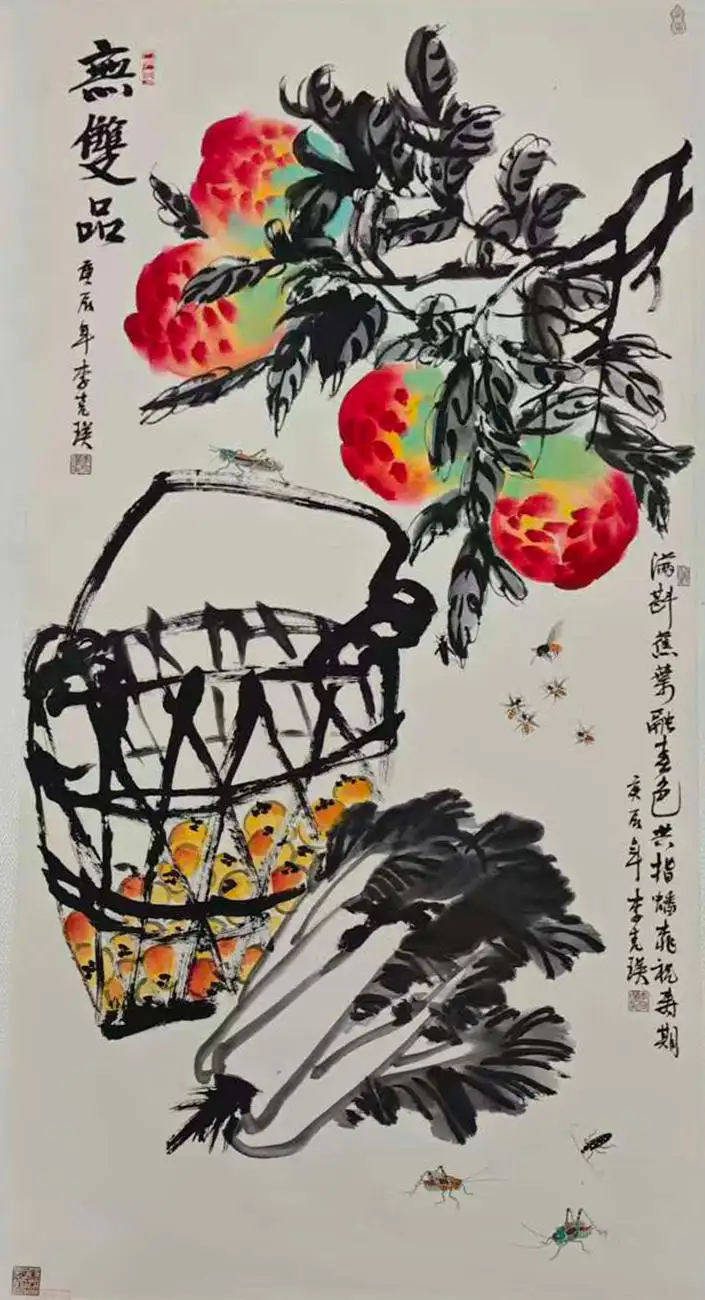 無雙品
庚辰年李克瑛
满斟蕉葉融春色共指蟠桃祝寿期
庚辰年李克瑛